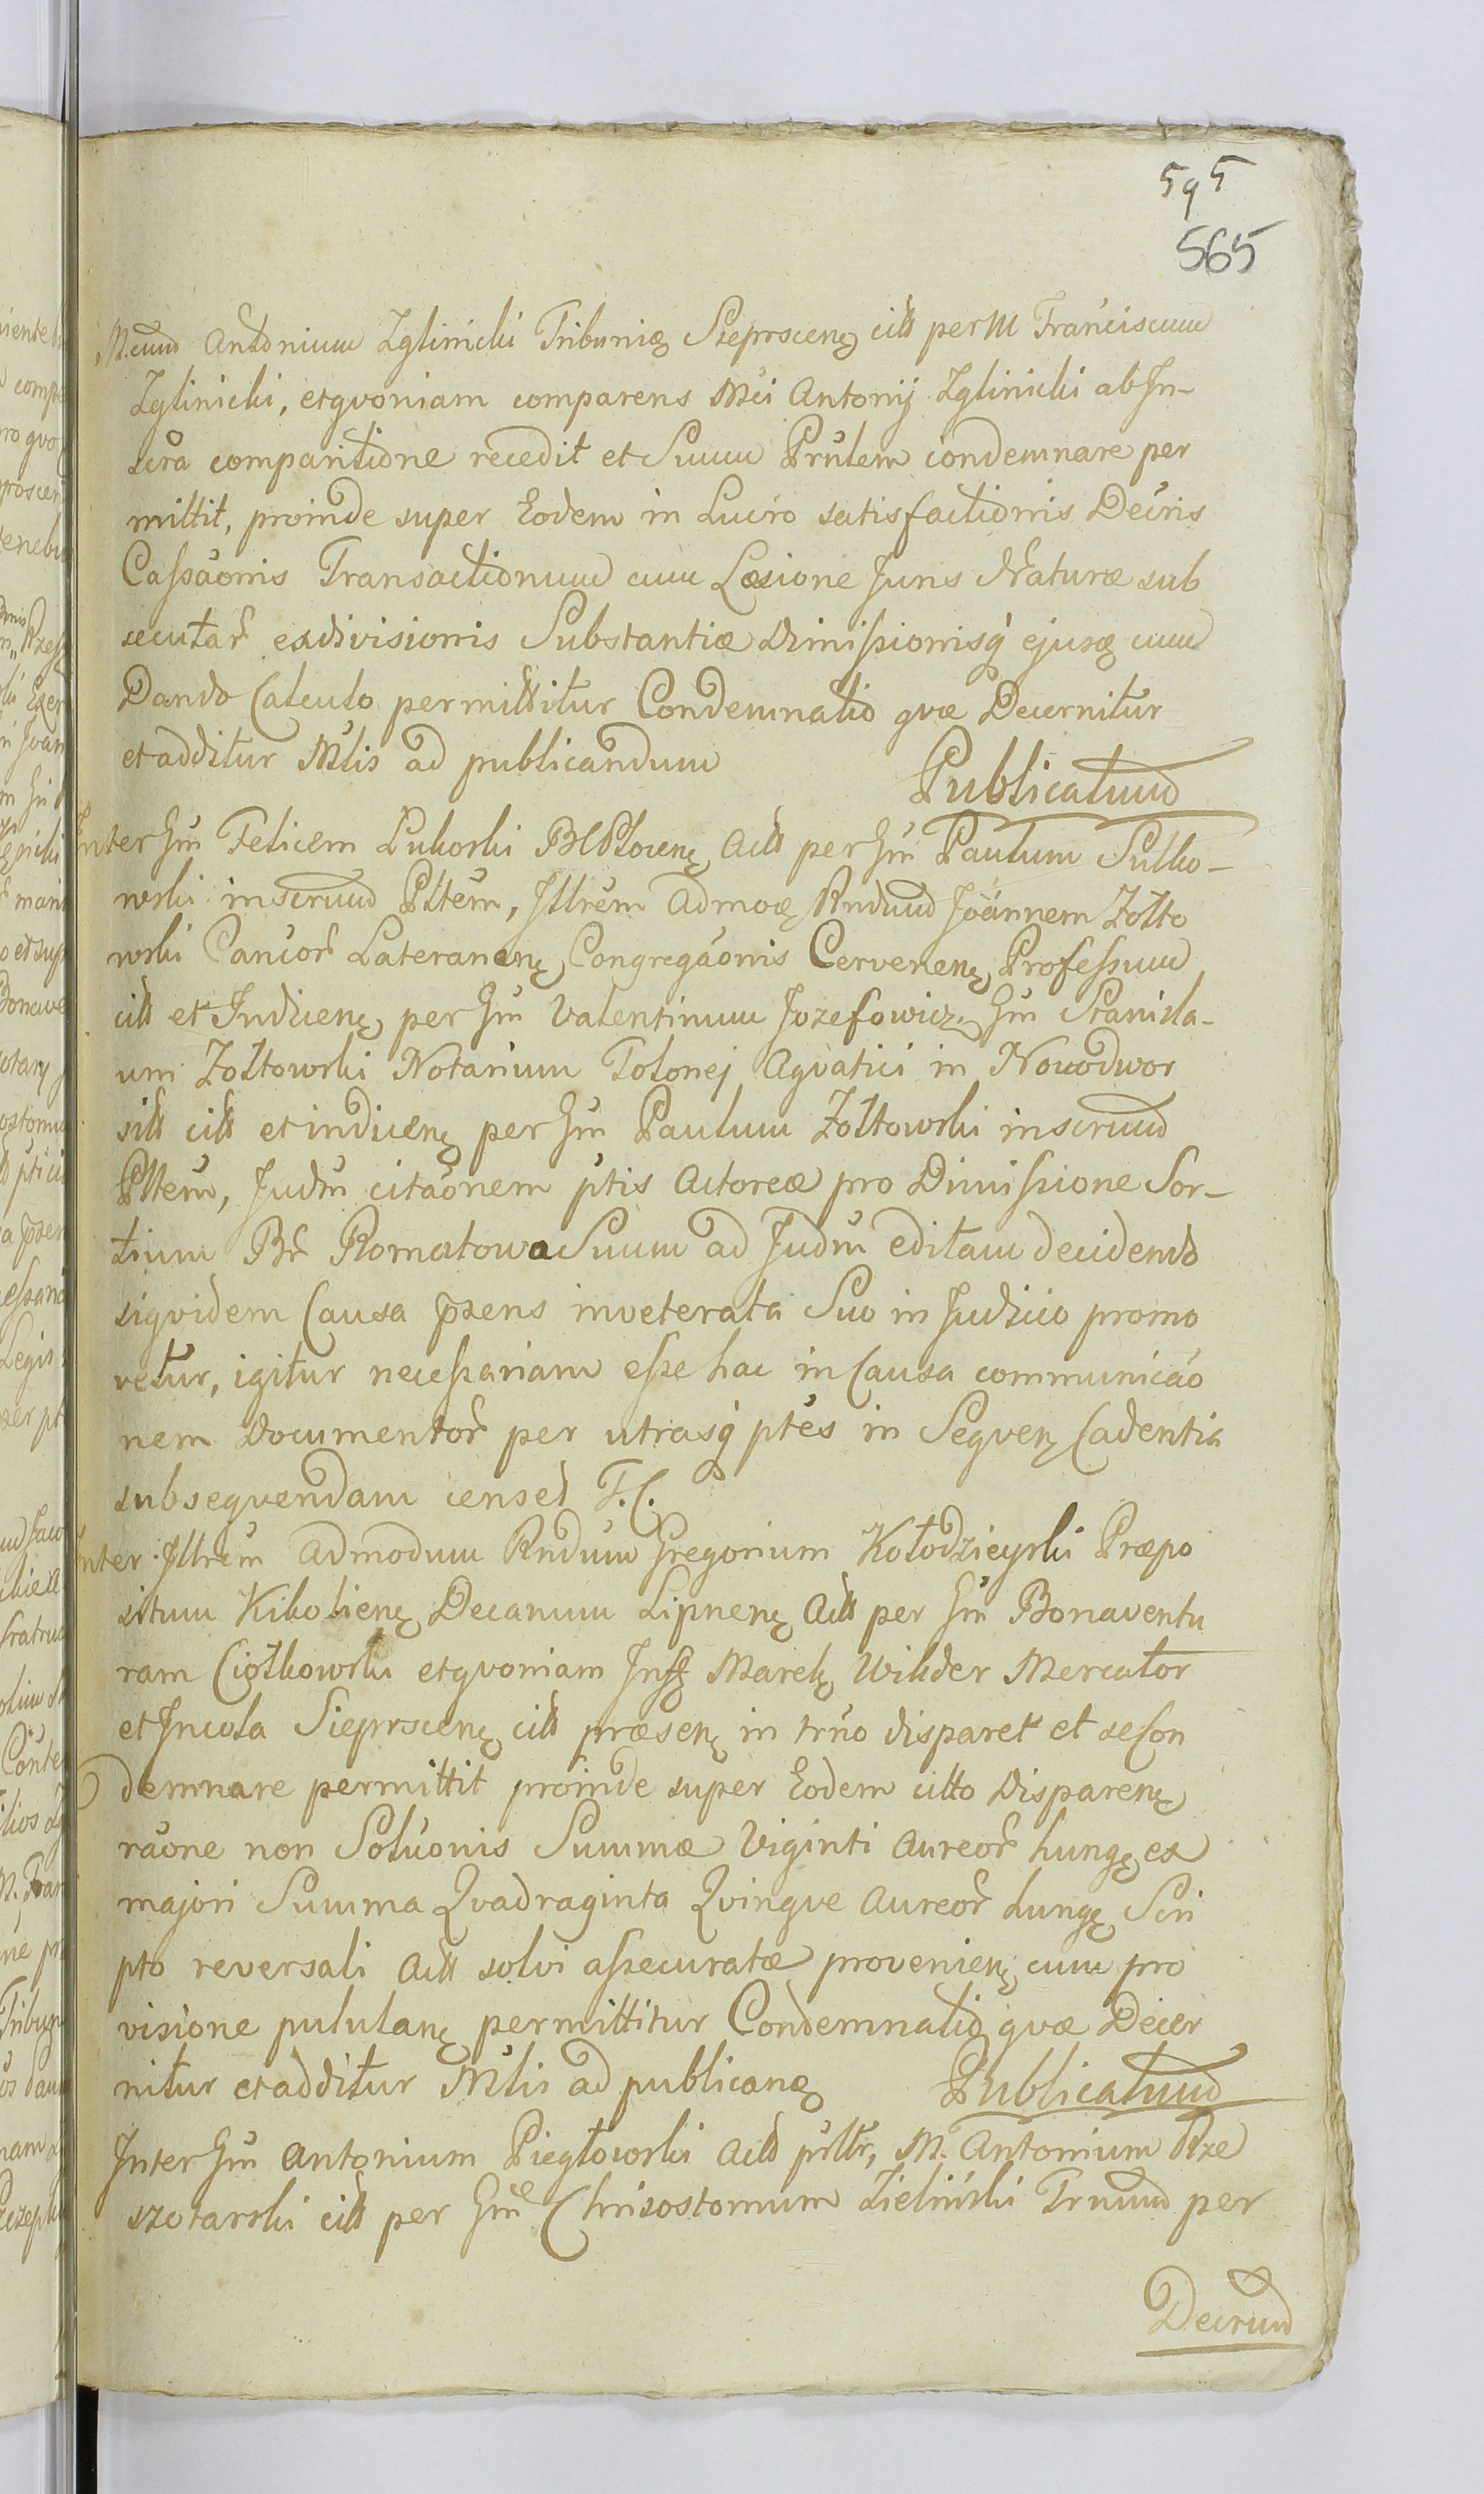 595
565
M.cum Antonium Zglinicki Tribunię Sieprscenę citt per M Franciscum
Zglinicki, et qvoniam comparens Mci Antonij Zglinicki ab In-
scra comparitione recedit et Suum Prnlem condemnare per
mittit, proinde super Eodem in Lucro satisfactionis Decris
Cassaonis Transactionum cum Læsione Juris Naturæ sub
secutar exdivisionis Substantiæ Dimissionisq ejusę cum
Dando Calculo permittitur Condemnatio qvæ Decernitur
et additur Mtlis ad publicandum
Publicatum
Inter Gm Felicem Lukoski BCPlocenę Actt per Gm Paulum Sutko-
wski inscrum Pltem, Illrem Admoę Rndum Joannem Zolto
wski Cancor Lateranenę Congregaonis Cervenenę Professum
citt et Indicenę per Gm Valentinum Jozefowicz. Gm Stanisla-
um Zołtowski Notarium Tolonej Aqvatici in Nowodwor
sitt citt et indicenę per Gm Paulum Zołtowski inscrum
Pltem, Judm citaonem ptis Actoreæ pro Dimissione Sor-
tium Br Romatowa Suum ad Judm editam decidendo
siqvidem Causa pzens inveterata Suo in Judicio promo
vetur, igitur necessariam esse hac in Causa communicao
nem Documentor per utrasq ptes in Seqvenę Cadentia
subseqvendam censet T.C.
Inter Illrem Admodum Rndum Gregorium Kołodzieyski Præpo
situm Kikolienę Decanum Lipnenę Actt per Gm Bonaventu
ram Ciołkowski et qvoniam Infę Marekę Wikder Mercator
et Incola Sieprscenę citt præsenę in trno disparet et se Con
demnare permittit proinde super Eodem citto Disparenę
raone non Soluonis Summæ Viginti Aureor hungę ex
majori Summa Qvadraginta Qvinqve Aureor hungę Scri
pto reversali Actt solvi assecuratæ provenienę cum pro
visione pululanę permittitur Condemnatio qvæ Decer
nitur et additur Mtlis ad publicanę
Publicatum
Inter Gm Antonium Piegłowski Actt prltr, M. Antonium Rze
szotarski citt per Gm Chrisostomum Zielinski Trnum per
Decrum